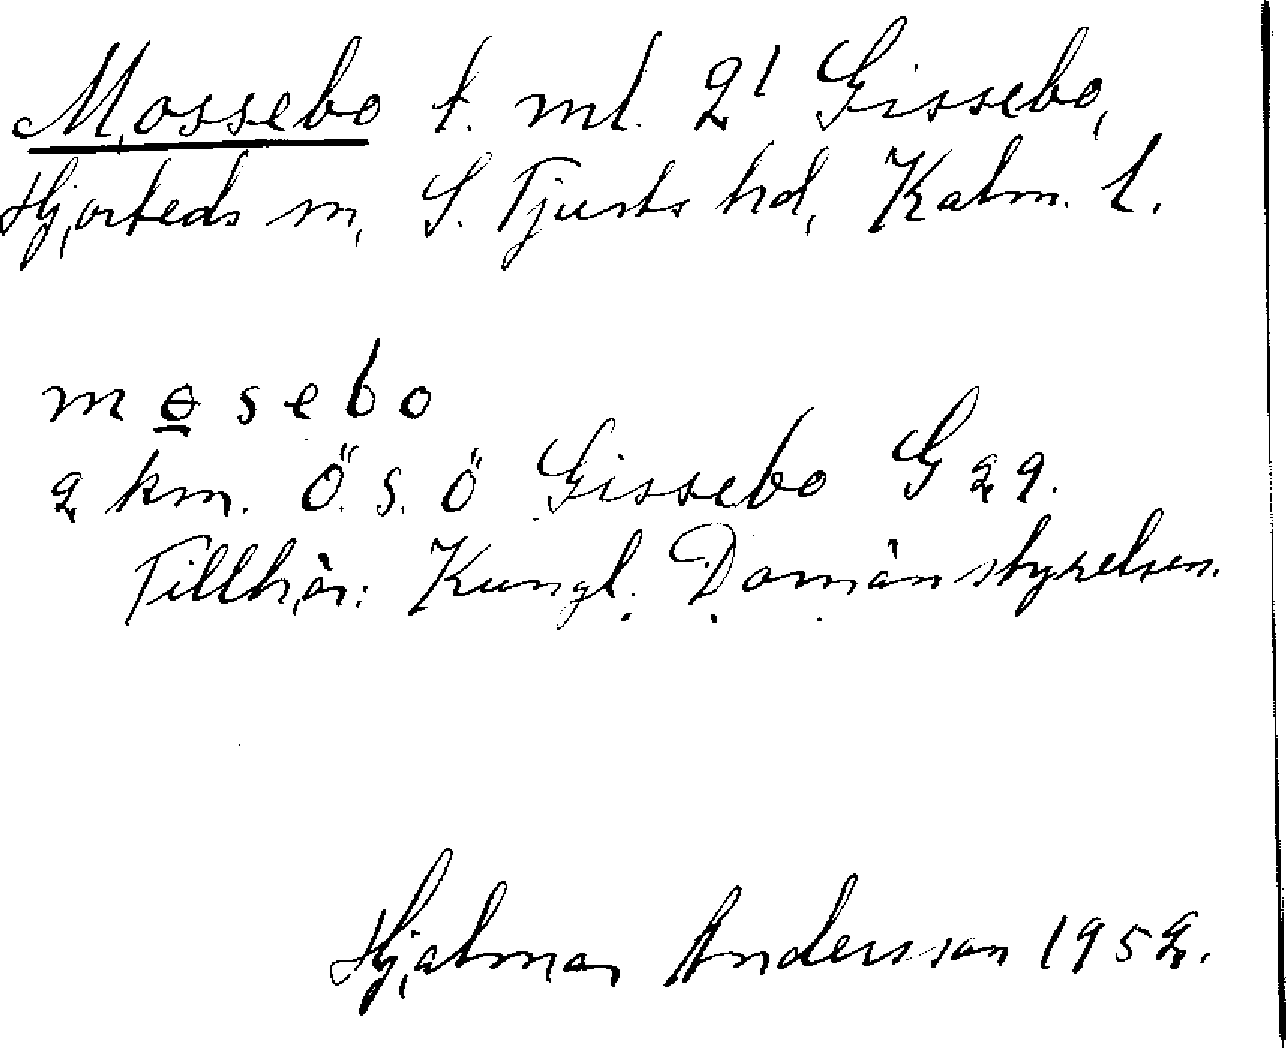 Mossebo t. ml. 2¹ Gissebo,
Hjorteds sn, S. Tjusts hd, Kalm. l.
mɵsebo
2 km. Ö.S.Ö Gissebo G 29.
Tillhör: Kungl. Domänstyrelsen.
Hjalmar Andersson 1952.